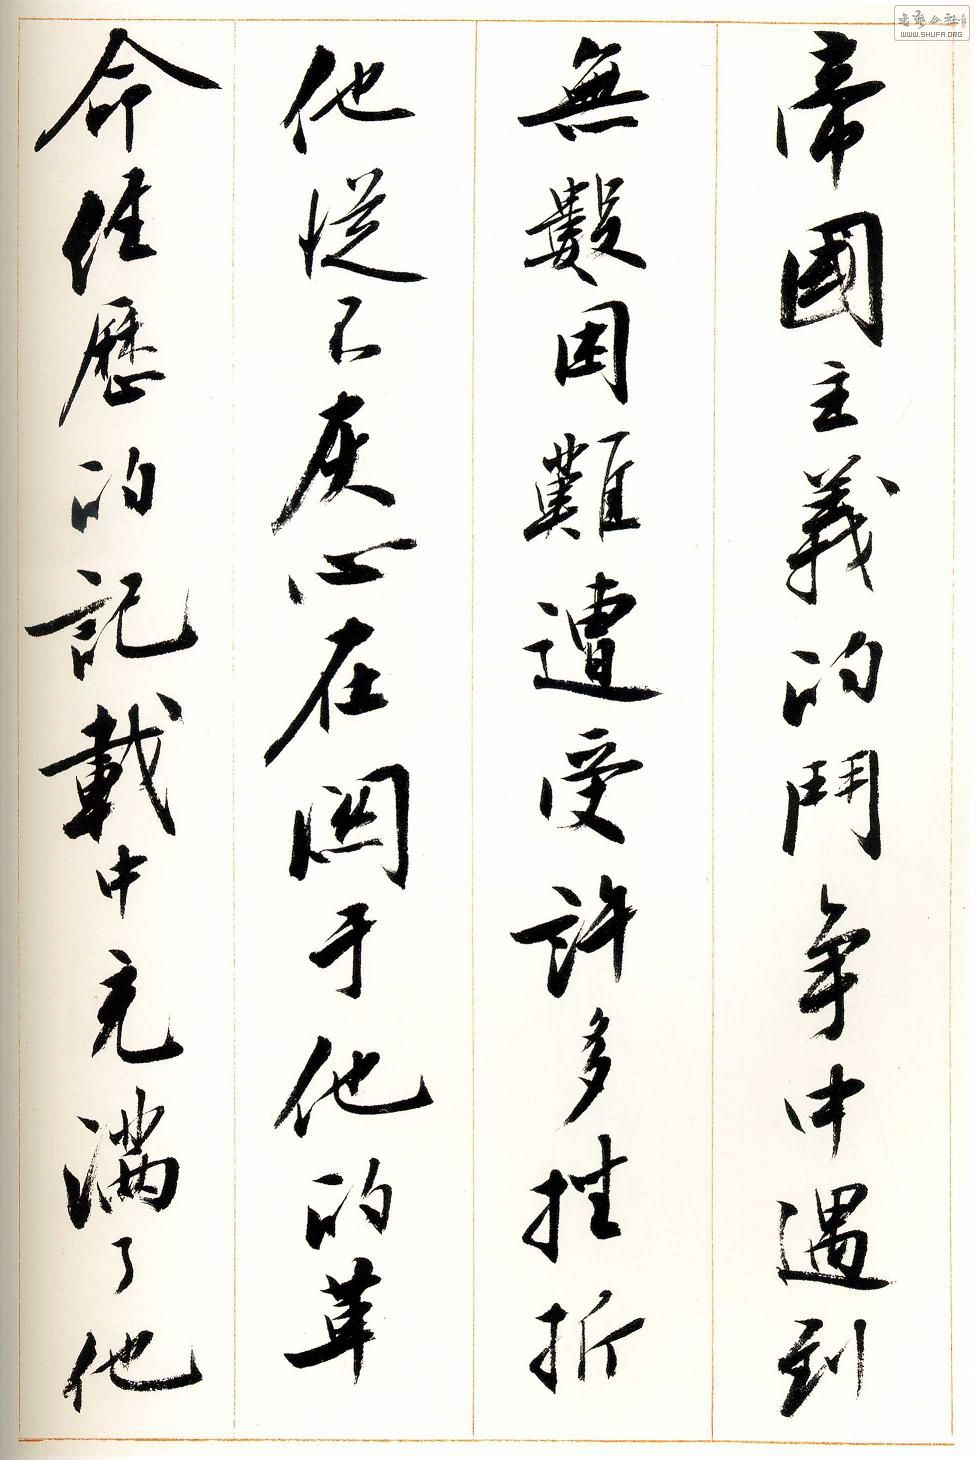 帝國主義的鬥争中遇到
無數困難遭受許多挫折
他從不灰心在関于他的革
命经歷的記載中充滿了他
書藝公社
WWW.SHUFA.ORG